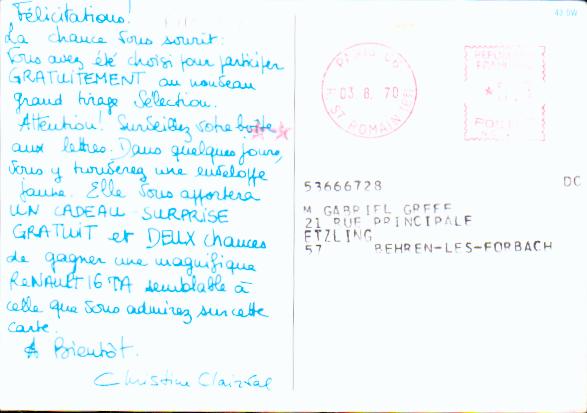 Félicitations!
La chance vous sourit.
Vous avez été choisi pour participer
GRATUITEMENT au nouveau
grand tirage Sélection.
Attention! Surveillez votre boîte
aux lettres. Dans quelques jours,
vous y trouverez une enveloppe
jaune. Elle vous apportera
UN CADEAU SURPRISE
GRATUIT et DEUX chances
de gagner une magnifique
RENAULT 16 TA semblable à
celle que vous admirez sur cette
carte.
A Bientôt.
Christine Clairval
PARIS
03.8.70
ST ROMAIN
53666728 DC
M GABRIEL GREFF
21 RUE PRINCIPALE
ETZLING
57 BEHREN-LES-FORBACH